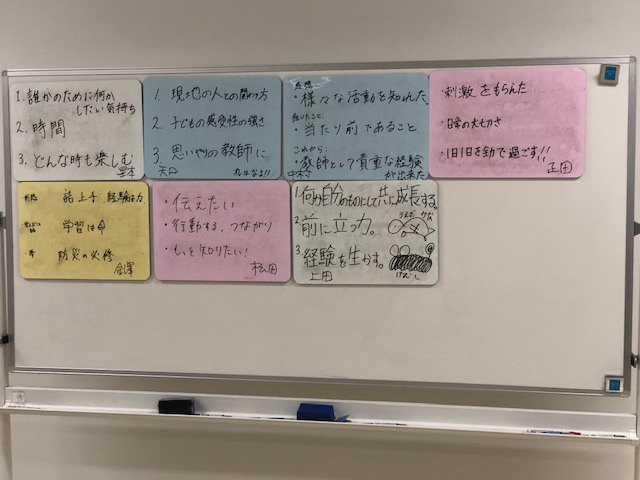 1. 誰かのために何か
したい気持ち
2. 時間
3. どんな時も楽しむ
1. 現地の人との関わり方
2. 子どもの感受性の強さ
3. 思いやりの教師に
なる!!
矢口
・様々な活動を知れた
・当たり前であること
これから:
・教師として貴重な経験
が出来た
中村
・刺激をもらった
・日常の大切さ
・1日1日を全力で過ごす!!
正田
話上手 経験は力
学習は命
防災の必修
・伝えたい
・行動する、つながり
・もっと知りたい!
松田
1. 何も自分のものにして共に成長する。
2. 前に立つ力。
3. 経験を生かす。
上田
うえだ かな